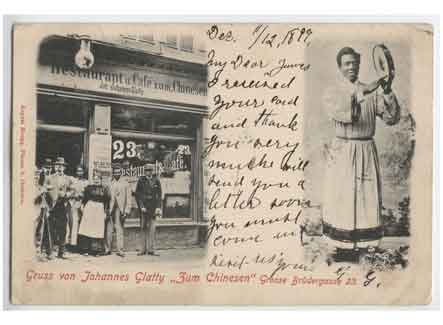 Restaurant u. Café zum Chinesen
Joh. Johannes Glatty
23.
Restaurant Café.
Dec. 1/12, 1899
My Dear James
I received
your card
and thank
you very
much will
send you a
letter soon
you must
come
yours
G.
Gruss von Johannes Glatty „Zum Chinesen" Grosse Brüdergasse 23.